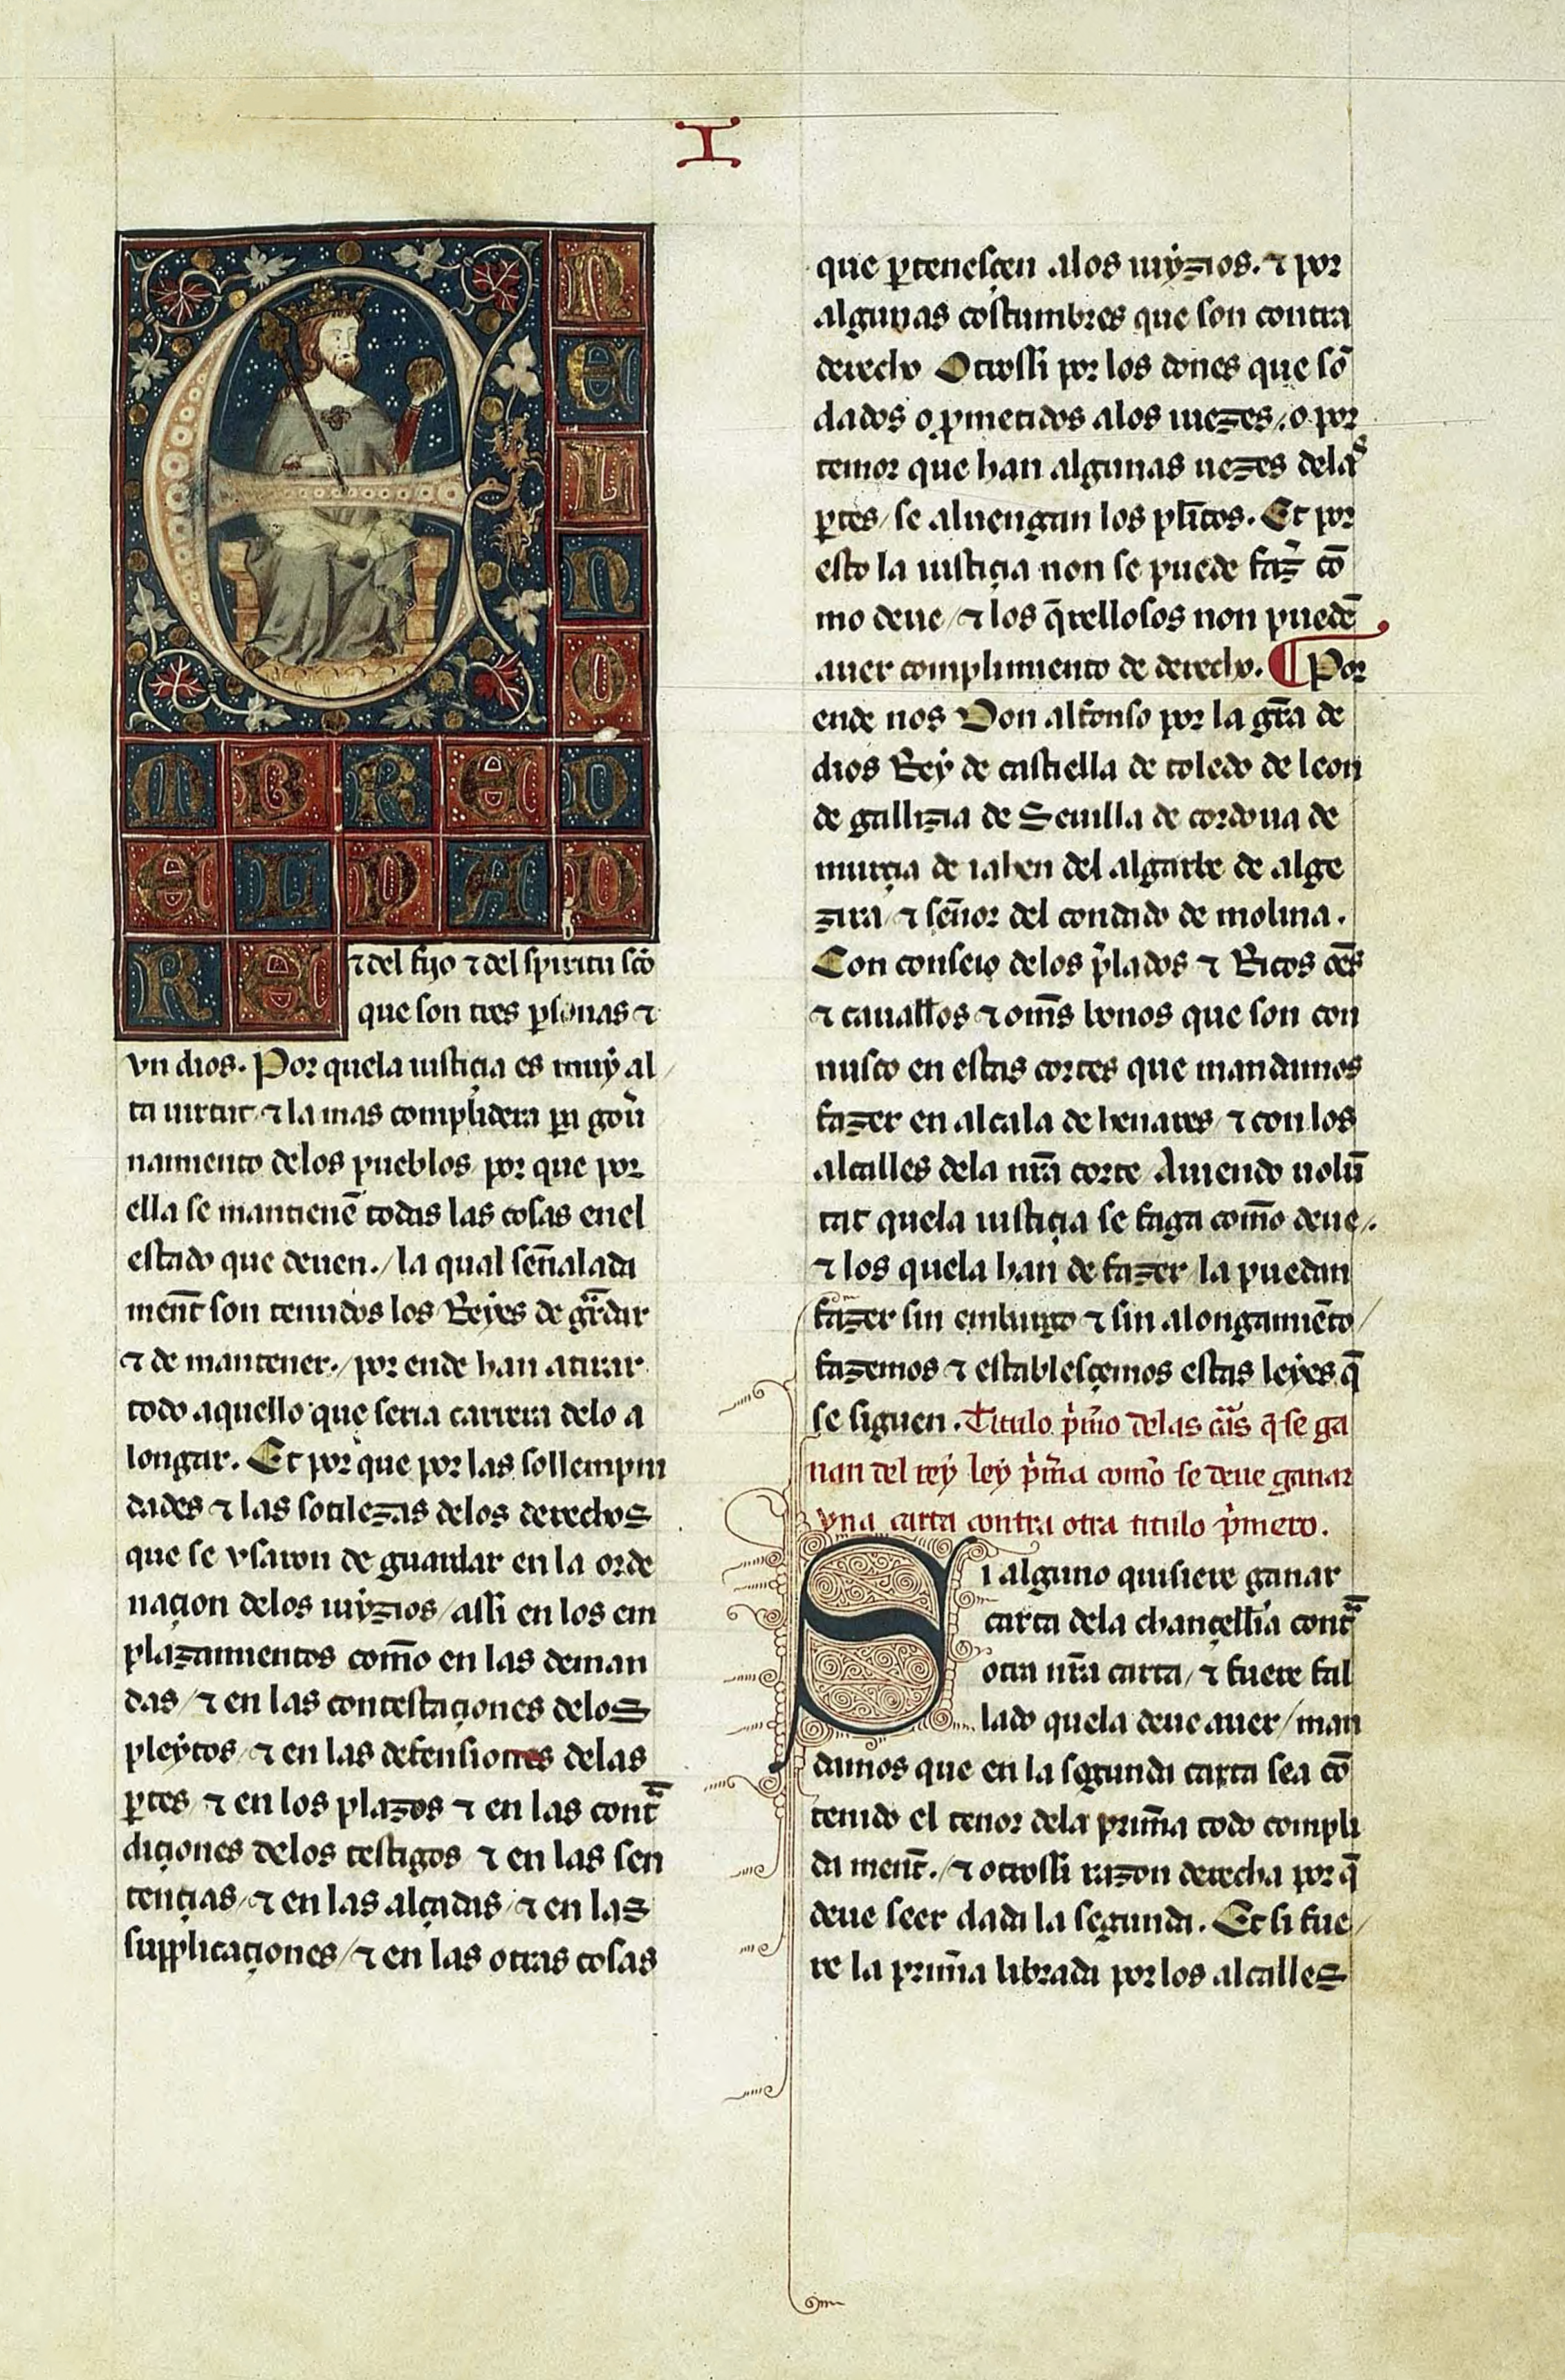 I
E
N
E
L
N
O
M B R E D
E L P A D
R E ⁊ del fijo ⁊ del spiritu sc̃o
que son tres ꝑsonas ⁊
vn dios. Por quela iustiçia es muẏ al
ta uirtut ⁊ la mas complidera ꝑa gou̾
namiento delos pueblos por que por
ella se mantienẽ todas las cosas enel
estado que deuen./ la qual señalada
ment̃ son tenudos los Reẏes de gͣrdar
⁊ de mantener./ por ende han a tirar
todo aquello que seria carrera delo a
longar. Et por que por las sollempni
dades ⁊ las sotilezas delos derechos
que se vsaron de guardar en la orde
naçion delos iuẏzios / assi en los em
plazamientos com̃o en las deman
das / ⁊ en las contestaçiones delos
pleẏtos / ⁊ en las defensiones delas
ꝑtes ⁊ en los plazos ⁊ en las contͣ
diçiones delos testigos ⁊ en las sen
tençias / ⁊ en las alçadas / ⁊ en las
supplicaçiones / ⁊ en las otras cosas
que ꝑtenesçen alos iuẏzios. ⁊ por
algunas costumbres que son contra
derecho Otrossi por los dones que sõ
dados o ꝓmetidos alos iuezes / o por
temor que han algunas uezes delaˢ
ꝑtes / se aluengan los pl̃itos. Et por
esto la iustiçia non se puede faz̾ cõ
mo deue / ⁊ los q̃rellosos non puedẽ
auer complimiento de derecho. ¶ Por
ende nos Don alfonso por la gr̃a de
dios Reẏ de castiella de toledo de leon
de gallizia de Seuilla de cordoua de
murçia de iahen del algarbe de alge
zira / ⁊ señor del condado de molina.
Con conseio delos p̾lados ⁊ Ricos om̃s
⁊ cauall̃os ⁊ om̃s bonos que son con
nusco en estas cortes que mandamos
fazer en alcala de henares / ⁊ con los
alcalles dela nr̃a corte Auiendo uolũ
tat quela iustiçia se faga com̃o deue /.
⁊ los quela han de fazer / la puedan
fazer sin embargo ⁊ sin alongamiẽto /
fazemos ⁊ establesçemos estas leẏes q̃
se siguen. Titulo p̾mo delas cãs q̃ se ga
nan del reẏ leẏ p̾m̃a com̃o se deue ganar
vna carta contra otra titulo p̾mero.
Si alguno quisiere ganar
carta dela chançell̃ia contͣ
otra nr̃a carta / ⁊ fuere fal
lado quela deue auer / man
damos que en la segunda carta sea cõ
tenido el tenor dela prim̃a todo compli
da ment̃. / ⁊ otrossi razon derecha por q̃
deue seer dada la segunda. Et si fue /
re la prim̃a librada por los alcalles